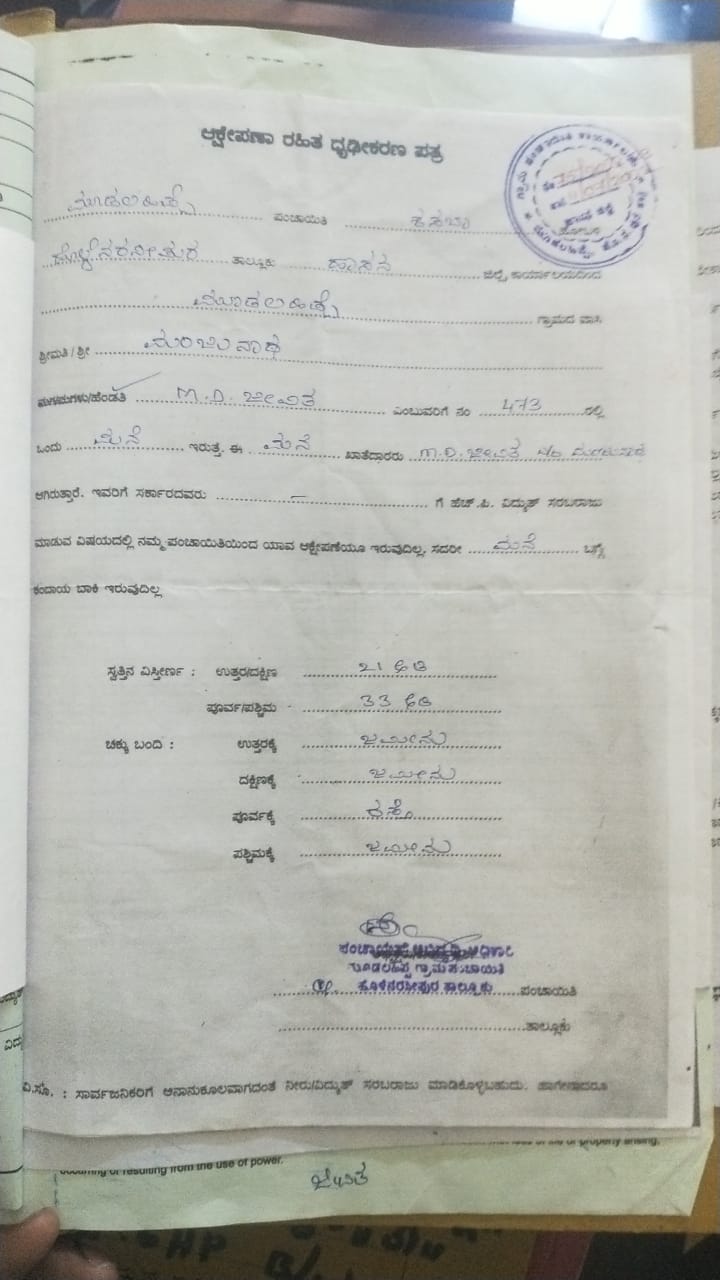 ಆಕ್ಷೇಪಣಾ ರಹಿತ ಧೃಢೀಕರಣ ಪತ್ರ
ಮೂಡಲಹಿಪ್ಪೆ ಪಂಚಾಯಿತಿ ಕಸಬಾ ಹೋಬಳಿ
ಹೊಳೆನರಸೀಪುರ ತಾಲ್ಲೂಕು ಹಾಸನ ಜಿಲ್ಲೆ, ಕಾರ್ಯಾಲಯದಿಂದ
ಮೂಡಲಹಿಪ್ಪೆ ಗ್ರಾಮದ ವಾಸಿ
ಶ್ರೀಮತಿ / ಶ್ರೀ ಮಂಜುನಾಥ
ಮಗ/ಮಗಳು/ಹೆಂಡತಿ M.D. ಜೀವಿತ ಎಂಬುವರಿಗೆ ನಂ 473 ರಲ್ಲಿ
ಒಂದು ಮನೆ ಇರುತ್ತ. ಈ ಮನೆ ಖಾತೆದ್ದಾರರು M.D. ಜೀವಿತ W/o ಮಂಜುನಾಥ
ಆಗಿರುತ್ತಾರೆ. ಇವರಿಗೆ ಸರ್ಕಾರದವರು – ಗೆ ಹೆಚ್.ಪಿ. ವಿದ್ಯುತ್ ಸರಬರಾಜು
ಮಾಡುವ ವಿಷಯದಲ್ಲಿ ನಮ್ಮ ಪಂಚಾಯಿತಿಯಿಂದ ಯಾವ ಆಕ್ಷೇಪಣೆಯೂ ಇರುವುದಿಲ್ಲ, ಸದರೀ ಮನೆ ಬಗ್ಗೆ
ಕಂದಾಯ ಬಾಕಿ ಇರುವುದಿಲ್ಲ
ಸ್ವತ್ತಿನ ವಿಸ್ತೀರ್ಣ : ಉತ್ತರ/ದಕ್ಷಿಣ 21 ಅಡಿ
ಪೂರ್ವ/ಪಶ್ಚಿಮ 33 ಅಡಿ
ಚಕ್ಕು ಬಂದಿ : ಉತ್ತರಕ್ಕೆ ಜಮೀನು
ದಕ್ಷಿಣಕ್ಕೆ ಜಮೀನು
ಪೂರ್ವಕ್ಕೆ ರಸ್ತೆ
ಪಶ್ಚಿಮಕ್ಕೆ ಜಮೀನು
ಪಂಚಾಯಿತಿ ಅಭಿವೃದ್ಧಿ ಅಧಿಕಾರಿ
ಮೂಡಲಹಿಪ್ಪೆ ಗ್ರಾಮ ಪಂಚಾಯಿತಿ
ಹೊಳೆನರಸೀಪುರ ತಾಲ್ಲೂಕು ಪಂಚಾಯಿತಿ
ತಾಲ್ಲೂಕು
ವಿ.ಸೂ. : ಸಾರ್ವಜನಿಕರಿಗೆ ಅನಾನುಕೂಲವಾಗದಂತೆ ನೀರು/ವಿದ್ಯುತ್ ಸರಬರಾಜು ಮಾಡಿಕೊಳ್ಳಬಹುದು. ಹಾಗೇನಾದರೂ
property arising,
occurring or resulting from the use of power.
ಜೀವಿತ